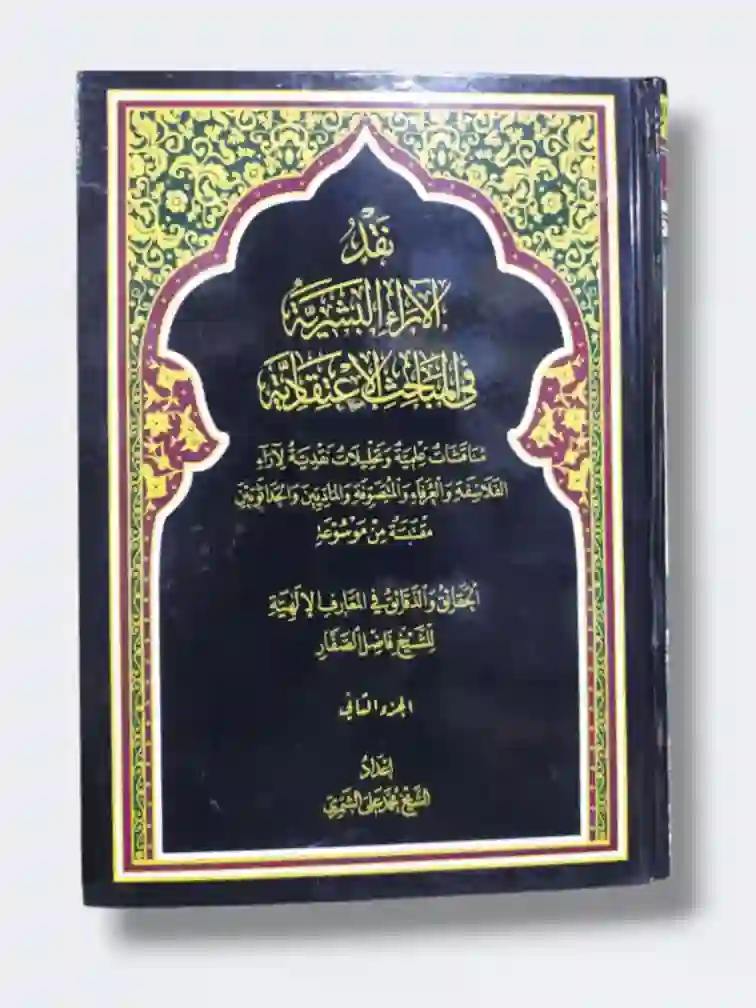 نَقْدُ
الآرَاءِ البَشَرِيَّةِ
فِي المَبَاحِثِ الاِعْتِقَادِيَّةِ
مُنَاقَشَاتٌ عِلْمِيَّةٌ وَتَحْلِيلَاتٌ نَقْدِيَّةٌ لِآرَاءِ
الفَلَاسِفَةِ وَالعُرَفَاءِ وَالمُتَصَوِّفَةِ وَالمَادِّيِّينَ وَالحَدَاثَوِيِّينَ
مُقْتَبَسَةٌ مِنْ مَوْسُوعَةِ
الحَقَائِقُ وَالدَّقَائِقُ فِي المَعَارِفِ الإِلَهِيَّةِ
لِلشَّيْخِ فَاضِلِ الصَّفَّارِ
الجزء الثاني
إعْدَادُ
الشَّيْخ مُحَمَّد عَلِي الشَّمَّرِي